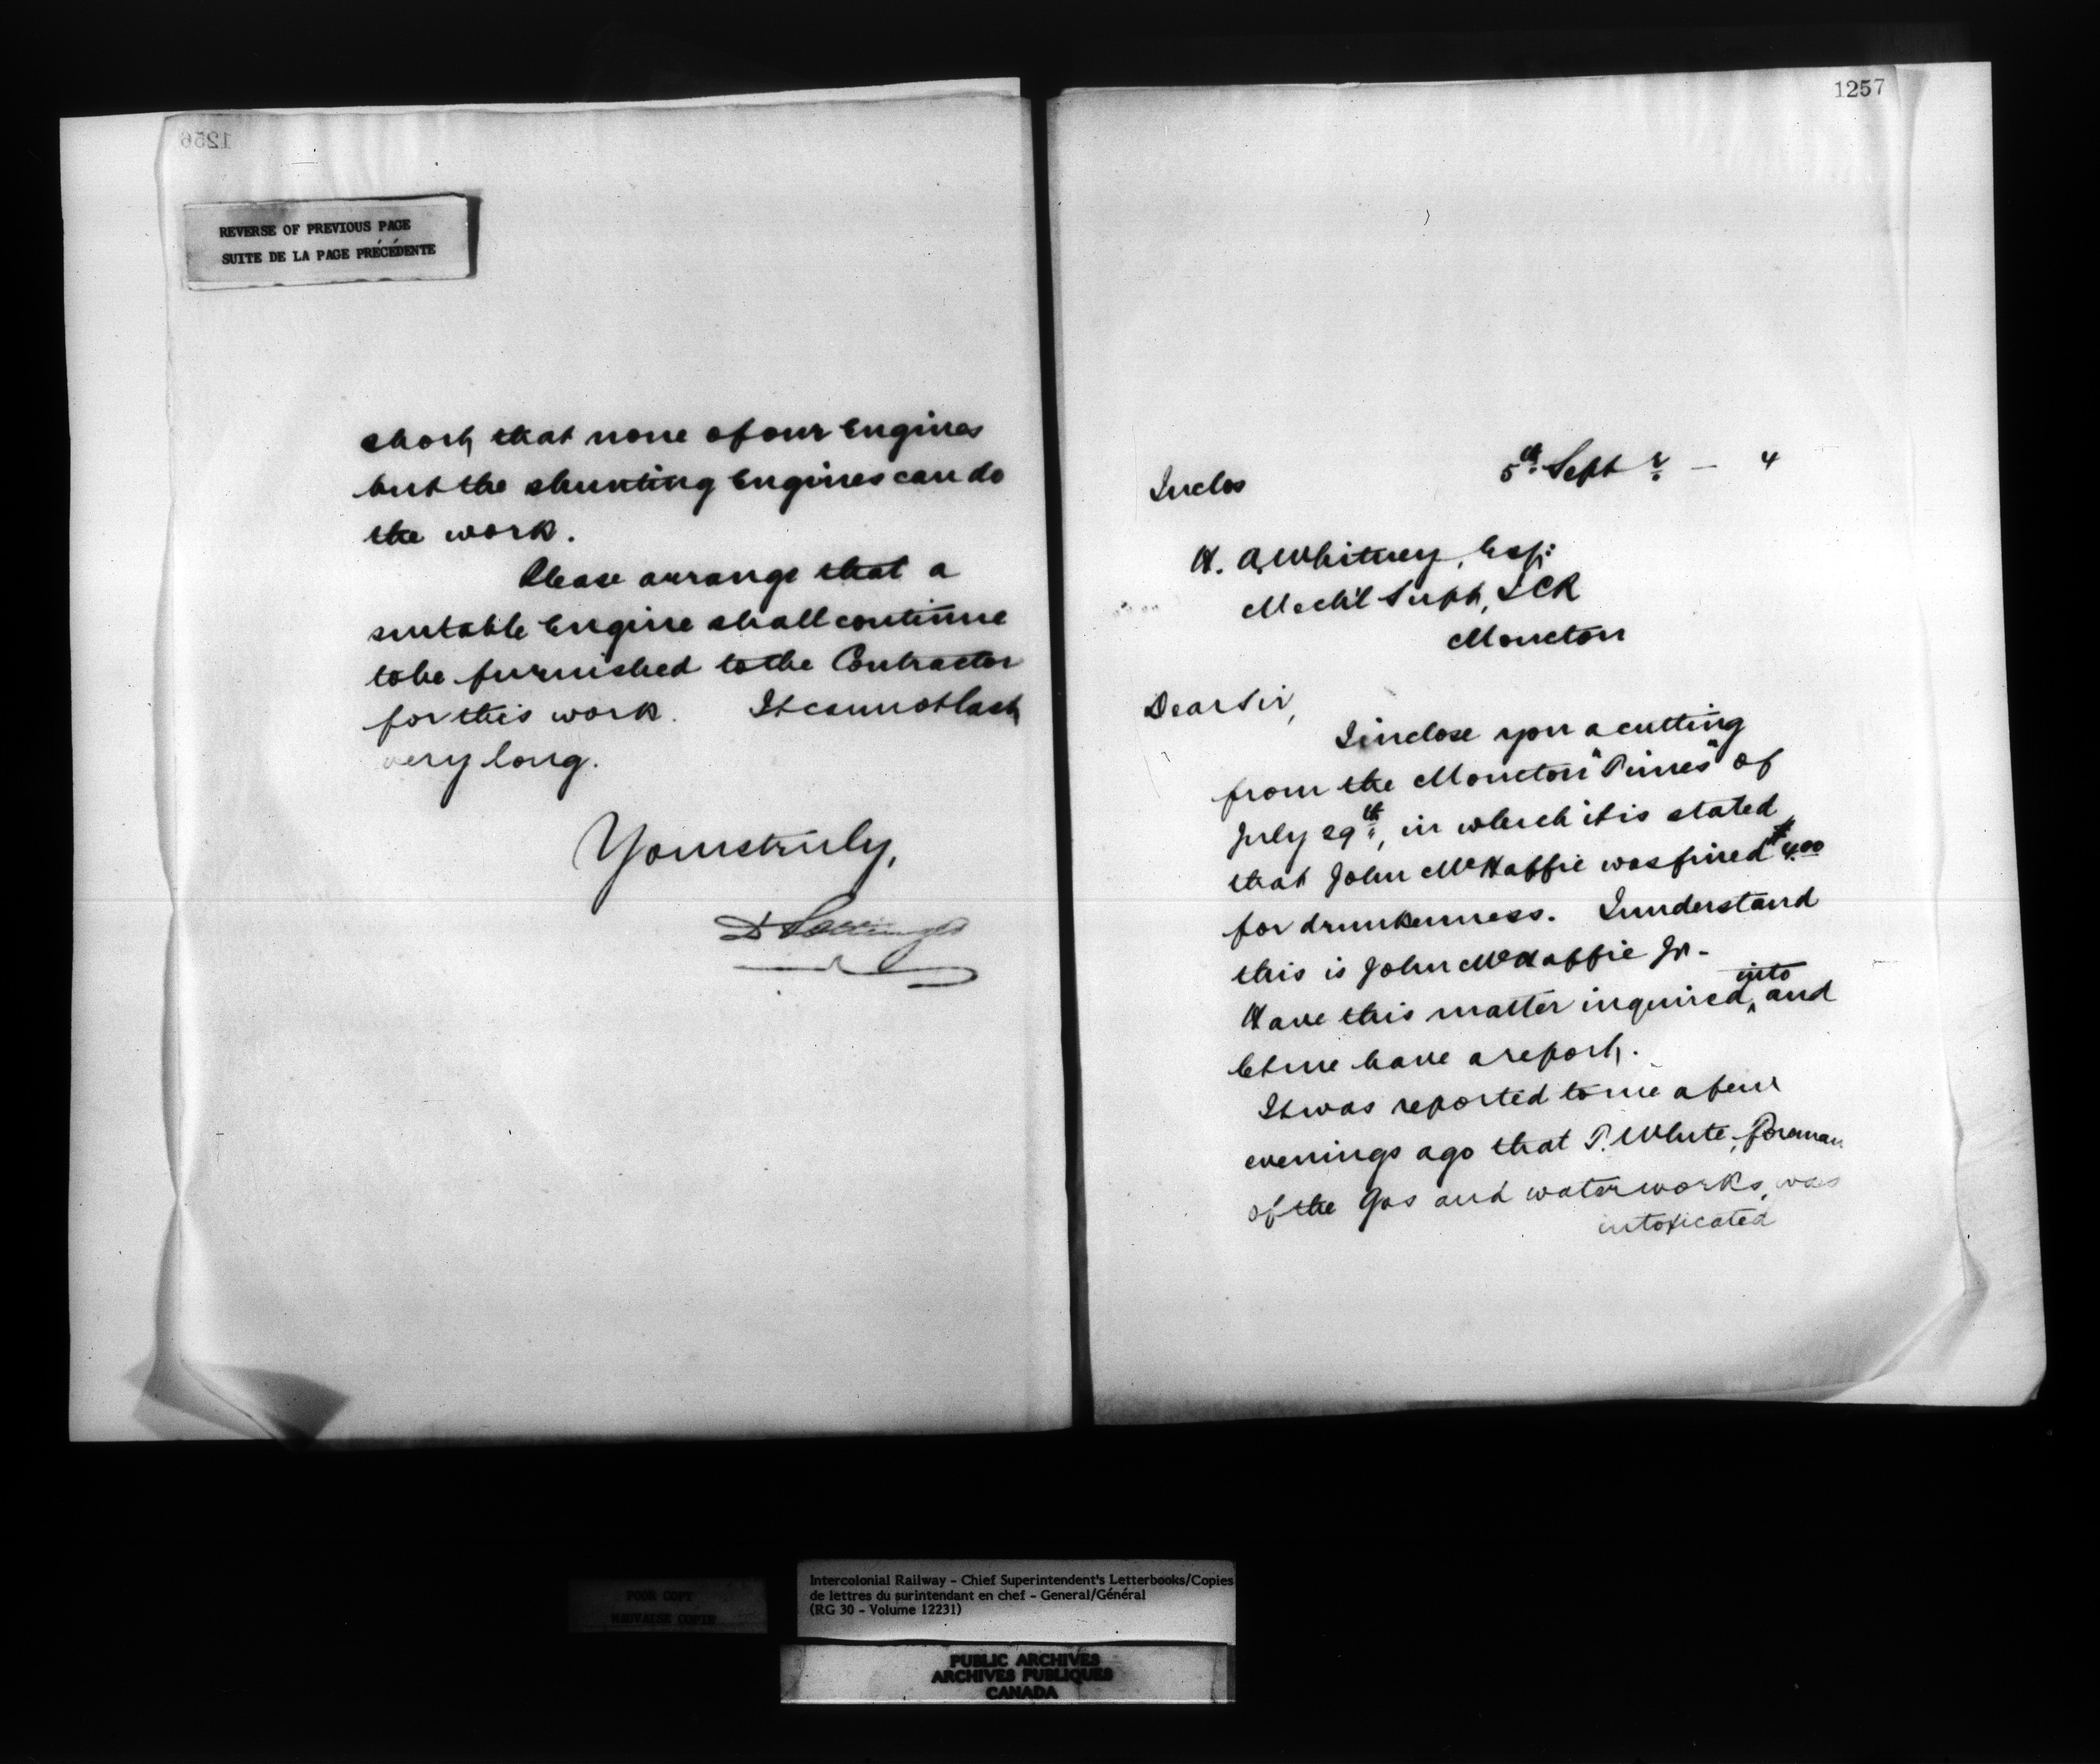 1256
REVERSE OF PREVIOUS PAGE
SUITE DE LA PAGE PRÉCÉDENTE
short, that none of our Engines
but the shunting Engines can do
the work.
Please arrange that a
suitable Engine shall continue
to be furnished to the Contractor
for this work. It cannot last
very long.
Yours truly,
D Pottinger
1257
5th Septr — 4
Inclos
H. A. Whitney, Esq:
Mech'l Supt, ICR
Moncton
Dear Sir,
I inclose you a cutting
from the Moncton "Times" of
July 29th, in which it is stated
that John McHaffie was fined $4.00
for drunkenness. I understand
this is John McHaffie Jr-
into
Have this matter inquired ^ and
let me have a report.
It was reported to me a few
evenings ago that P. White, foreman
of the Gas and waterworks, was
intoxicated
POOR COPY
MAUVAISE COPIE
Intercolonial Railway - Chief Superintendent's Letterbooks/Copies
de lettres du surintendant en chef - General/Général
(RG 30 - Volume 12231)
PUBLIC ARCHIVES
ARCHIVES PUBLIQUES
CANADA